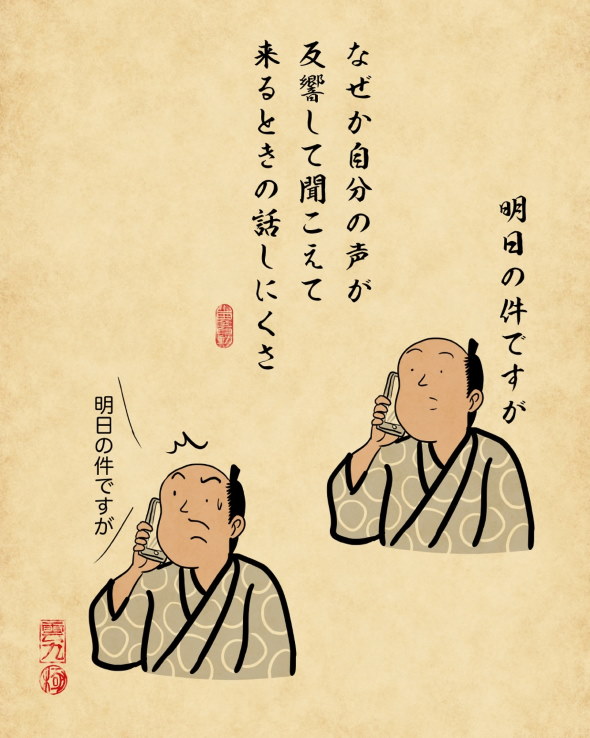 なぜか自分の声が
反響して聞こえて
来るときの話しにくさ
明日の件ですが
明日の件ですが